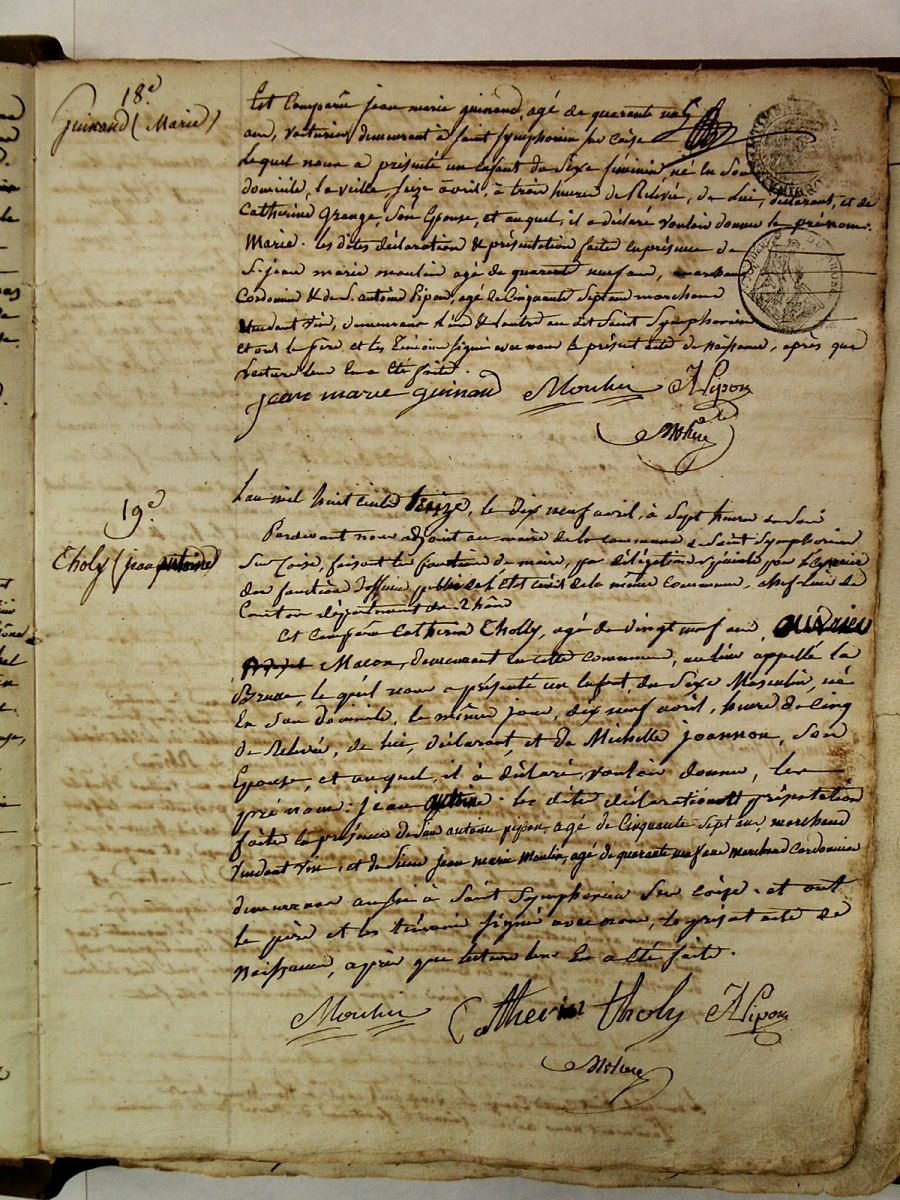 18e
Guinand (Marie)
Est Comparu jean marie guinand, agé de quarante
ans, voiturier, demeurant à Saint Symphorien sur Coise
Lequel nous a présenté un Enfant du Sexe féminin, né En Son
domicile, la veille Seize avril, à trois heures de Relevé, de Lui, déclarant, et de
Catherine Grange, Son Epouse, et auquel, il a déclaré vouloir donner le prénom:
Marie. les dites déclaration & présentation faite En présence de
S. jean marie moulin agé de quarante neuf ans, marchand
Cordonnier & de S. antoine Pipon, agé de Cinquante Sept ans marchand
Vendant Vin, demeurans l'un & l'autre au dit Saint Symphorien
et ont le père et les Témoins Signé avec nous le présent acte de Naissance, après que
Lecture leur En a été faite.
jean marie guinand Moulin APipon
19e
Tholy (jean antoine)
L'an mil huit cent treize, le dix neuf avril, à Sept heures du Soir
Pardevant nous adjoint au maire de la commune de Saint Symphorien
Sur Coise, faisant les fonctions de maire, par délégation Spéciale pour L'Exercice
des fonctions d'officier public de L'Etat civil de la même Commune, chef Lieu de
Canton département du Rhône
Est Comparu Catherin Tholly, agé de vingt neuf ans, ouvrier
Maçon, demeurant En cette commune, au lieu appellé la
, le quel nous a présenté un Enfant, du Sexe Masculin, né
En Son domicile, le même jour, dix neuf avril, heure de Cinq
de Relevée, de lui, déclarant, et de Michelle joannon, Son
Epouse, et auquel, il à déclaré, vouloir donner, les
prénoms: jean antoine. les dites déclaration et présentation
faite En présence de Sieur antoine pipon, agé de Cinquante Sept ans, marchand
Vendant Vin, et de Sieur jean marie Moulin, agé de quarante neuf ans marchand Cordonnier
demeurans aussi à Saint Symphorien Sur Coise. et ont
le père et les témoins Signé avec nous, le présent acte de
Naissance, après que lecture leur En a été faite.
Moulin Catherin tholy APipon